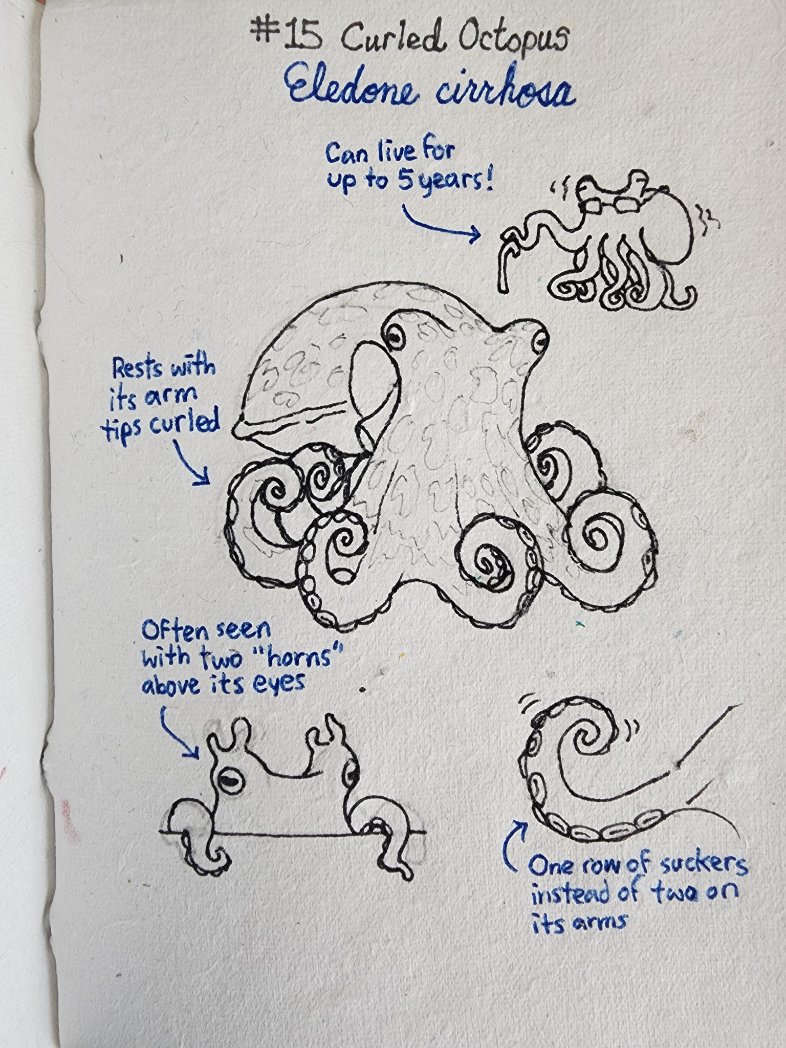 #15 Curled Octopus
Eledone cirrhosa
Can live for
up to 5 years!
Rests with
its arm
tips curled
Often seen
with two "horns"
above its eyes
One row of suckers
instead of two on
its arms